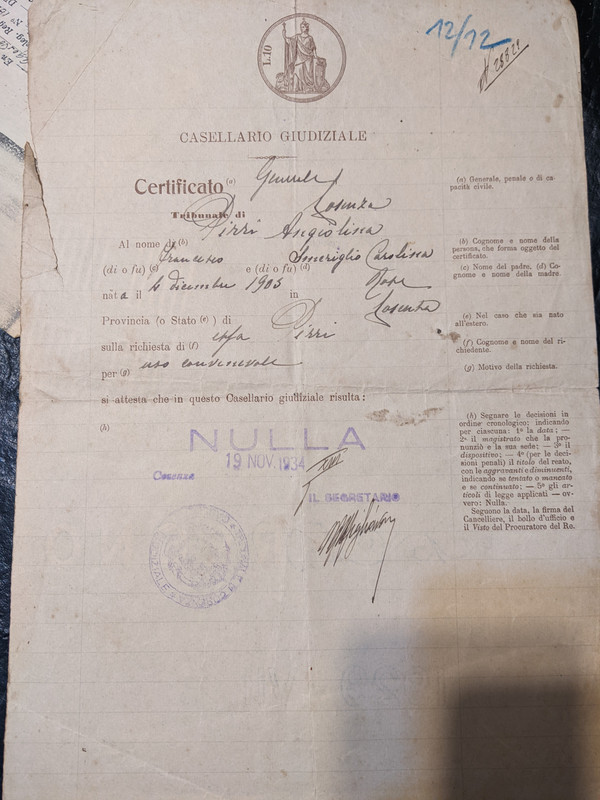 L. 10
12/12
CASELLARIO GIUDIZIALE
Certificato (a) Generale
Tribunale di Cosenza
Al nome di (b) Pizzi Angiolina
(di o fu) (c) Francesco e (di o fu) (d) Smeriglio Carolina
nata il 4 dicembre 1903 in
Provincia (o Stato (e)) di Cosenza
sulla richiesta di (f) essa Pizzi
per (g) uso convenevole
si attesta che in questo Casellario giudiziale risulta:
(h)
NULLA
19 NOV. 1934 XIII
Cosenza
IL SEGRETARIO
(a) Generale, penale o di ca-
pacità civile.
(b) Cognome e nome della
persona, che forma oggetto del
certificato.
(c) Nome del padre. (d) Co-
gnome e nome della madre.
(e) Nel caso che sia nato
all'estero.
(f) Cognome e nome del ri-
chiedente.
(g) Motivo della richiesta.
(h) Segnare le decisioni in
ordine cronologico: indicando
per ciascuna: 1º la data; —
2º il magistrato che la pro-
nunziò e la sua sede; — 3º il
dispositivo; — 4º (per le deci-
sioni penali) il titolo del reato,
con le aggravanti e diminuenti,
indicando se tentato o mancato
e se continuato; — 5º gli ar-
ticoli di legge applicati — ov-
vero: Nulla.
Seguono la data, la firma del
Cancelliere, il bollo d'ufficio e
il Visto del Procuratore del Re.